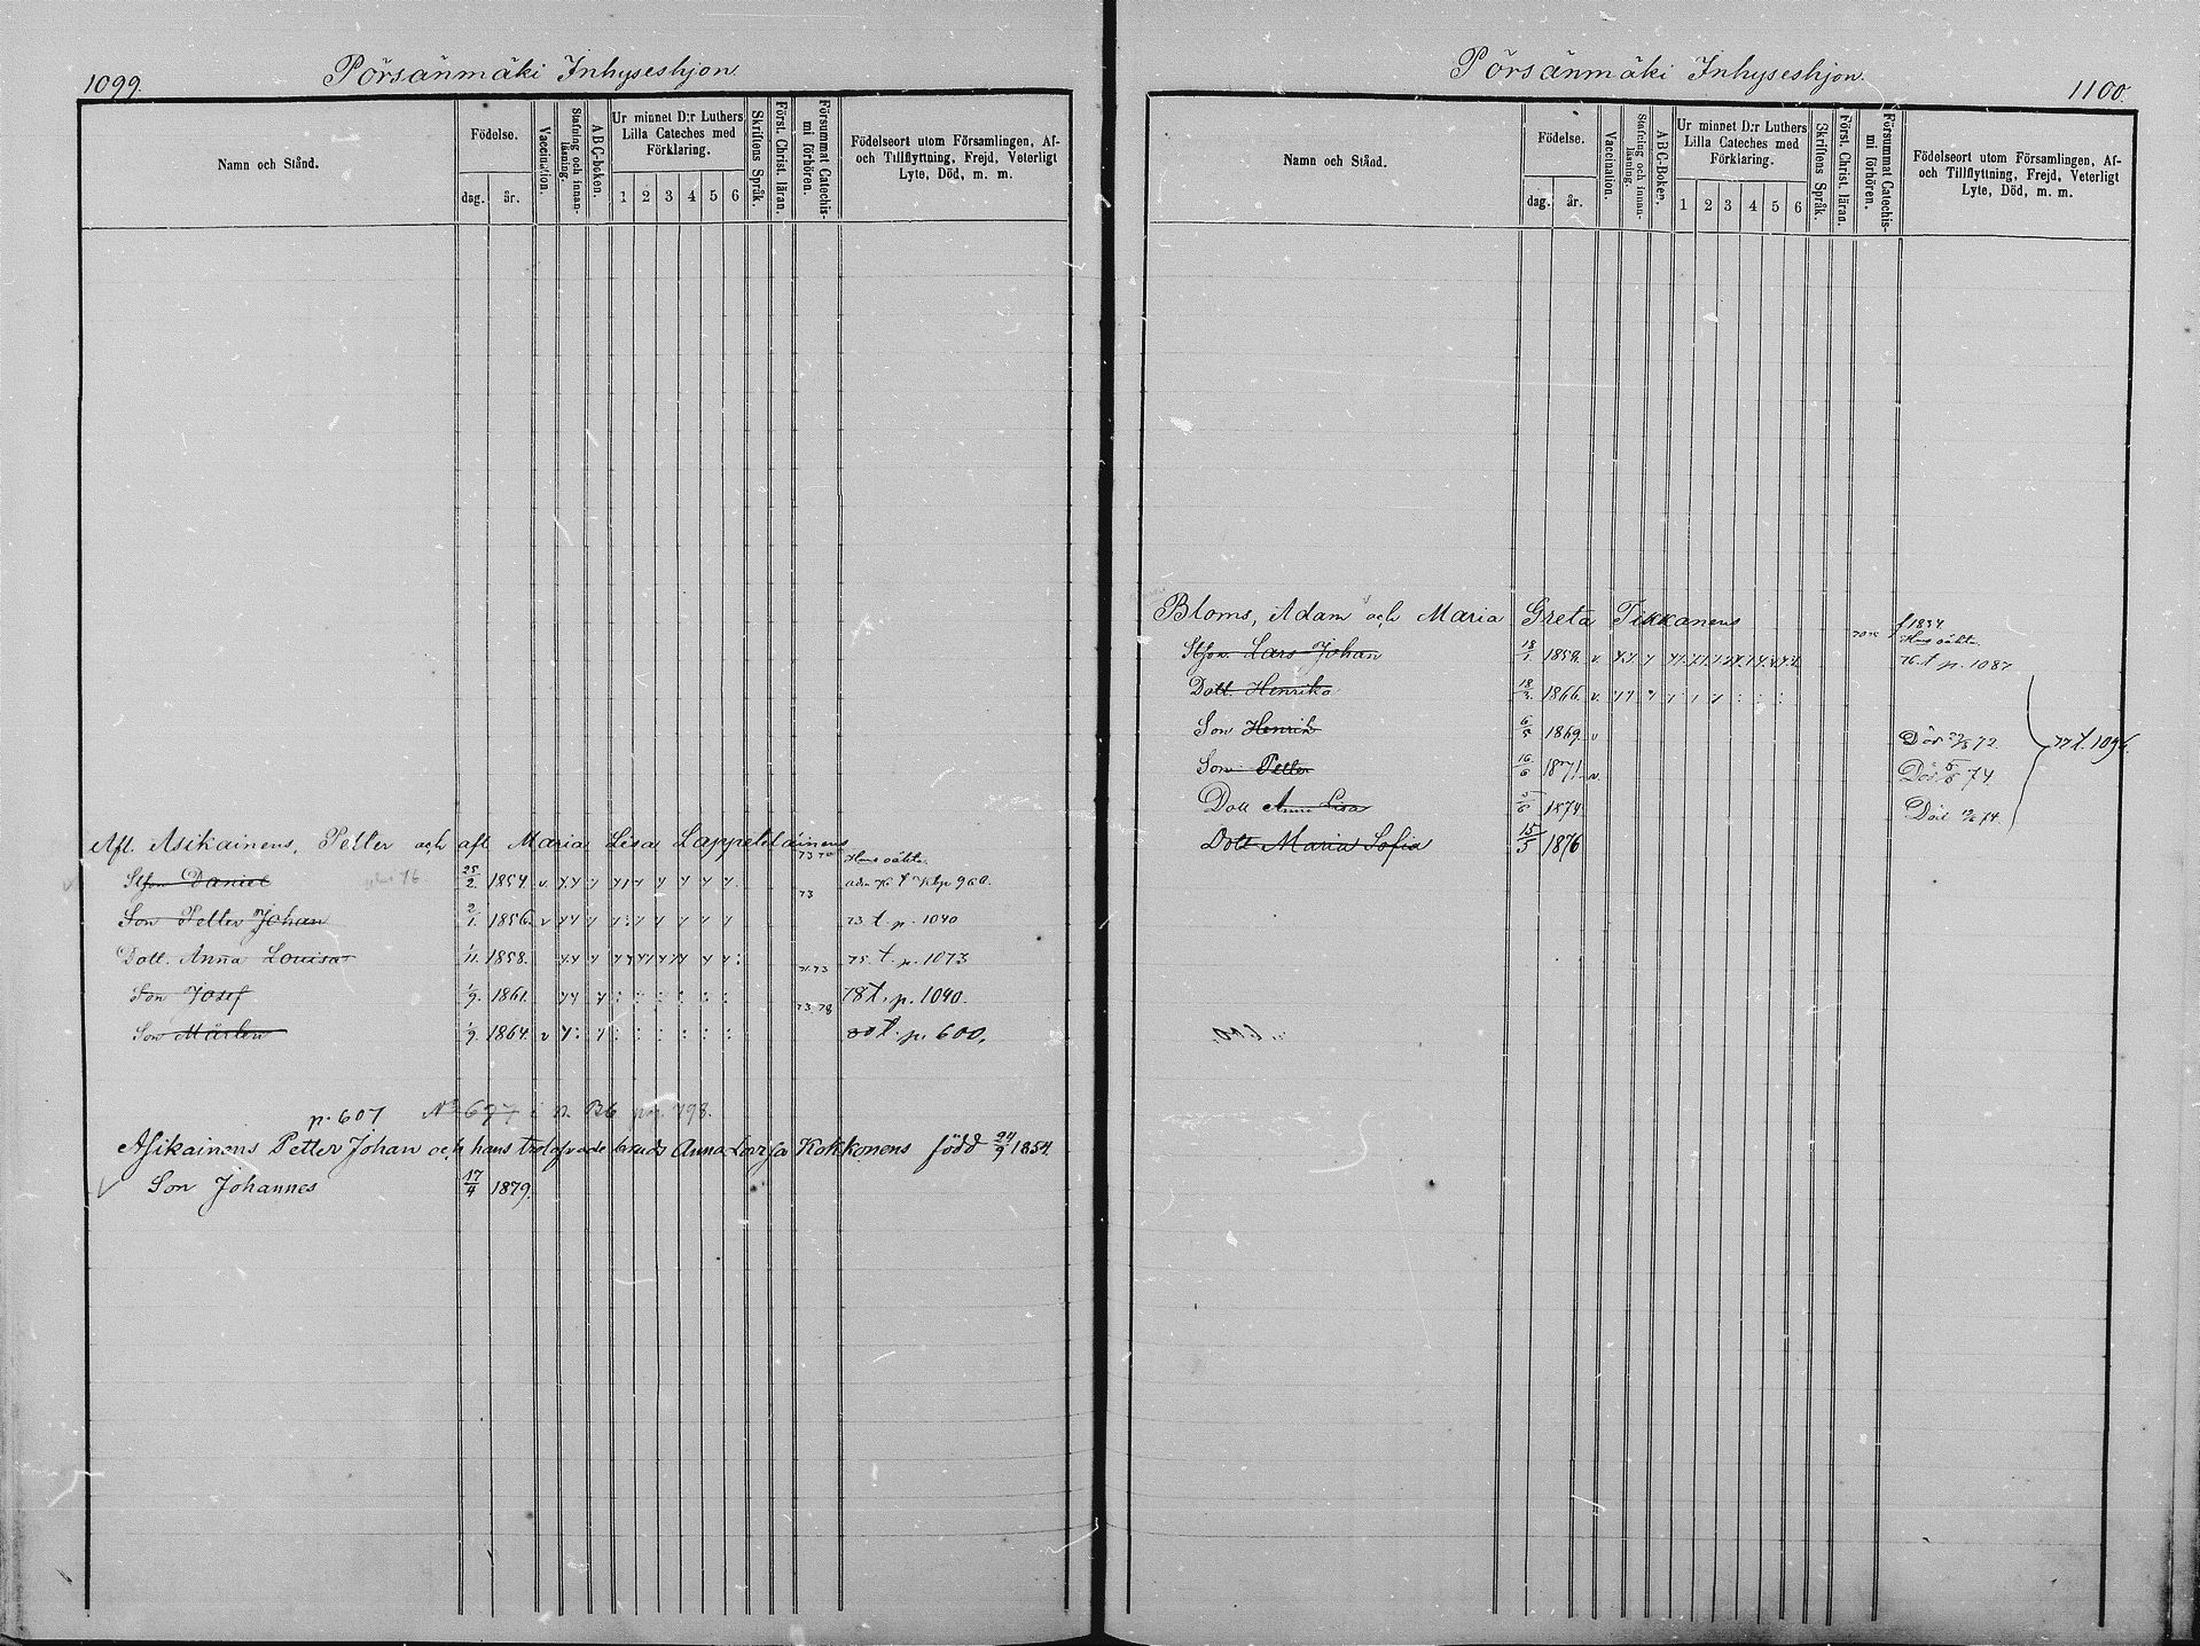 1099.
Pörsänmäki Inhyseshjon.
Namn och Stånd.
Födelse.
dag.
år.
Vaccination.
Stafning och innan-läsning.
ABC-boken.
Ur minnet D:r Luthers
Lilla Cateches med
Förklaring.
1 2 3 4 5 6
Skriftens Språk.
Först. Christ. läran.
Försummat Catechis-
mi förhören.
Födelseort utom Församlingen, Af-
och Tillflyttning, Frejd, Veterligt
Lyte, Död, m. m.
Afl. Asikainens, Petter och afl Maria Lisa Lappeteläinens
Daniel 25/2. 1854. v. 73 960.
Son Petter Johan 2/1. 1856. v 73 t. p. 1040
Dott. Anna Louisa 1/11. 1858. 75. t. p. 1073
Son Josef 1/9. 1861. 73 78 78 t. p. 1040.
Son Mårten 1/9. 1864. v t. p. 600.
p. 607 No 677
Asikainens Petter Johan och hans trolofvade brud Anna Lovisa Kokkonens född 24/9 1854.
Son Johannes 17/4 1879.
Pörsänmäki Inhyseshjon.
1100.
Namn och Stånd.
Födelse.
dag.
år.
Vaccination.
Stafning och innan-läsning.
ABC-Boken.
Ur minnet D:r Luthers
Lilla Cateches med
Förklaring.
1 2 3 4 5 6
Skriftens Språk.
Först. Christ. läran.
Försummat Catechis-
mi förhören.
Födelseort utom Församlingen, Af-
och Tillflyttning, Frejd, Veterligt
Lyte, Död, m. m.
Bloms, Adam och Maria Greta Tikkanens f 1834
Lars Johan 18/1 1858. v. 76. t p. 1087
Dott. Henrika 18/2. 1866. v.
Son Henrik 6/5 1869. v Död 72. 77 t. 1096.
Son Petter 16/6 1871. v. Död 74
Dott Anna Lisa 1874 Död 74.
Dott Maria Sofia 15/5 1876